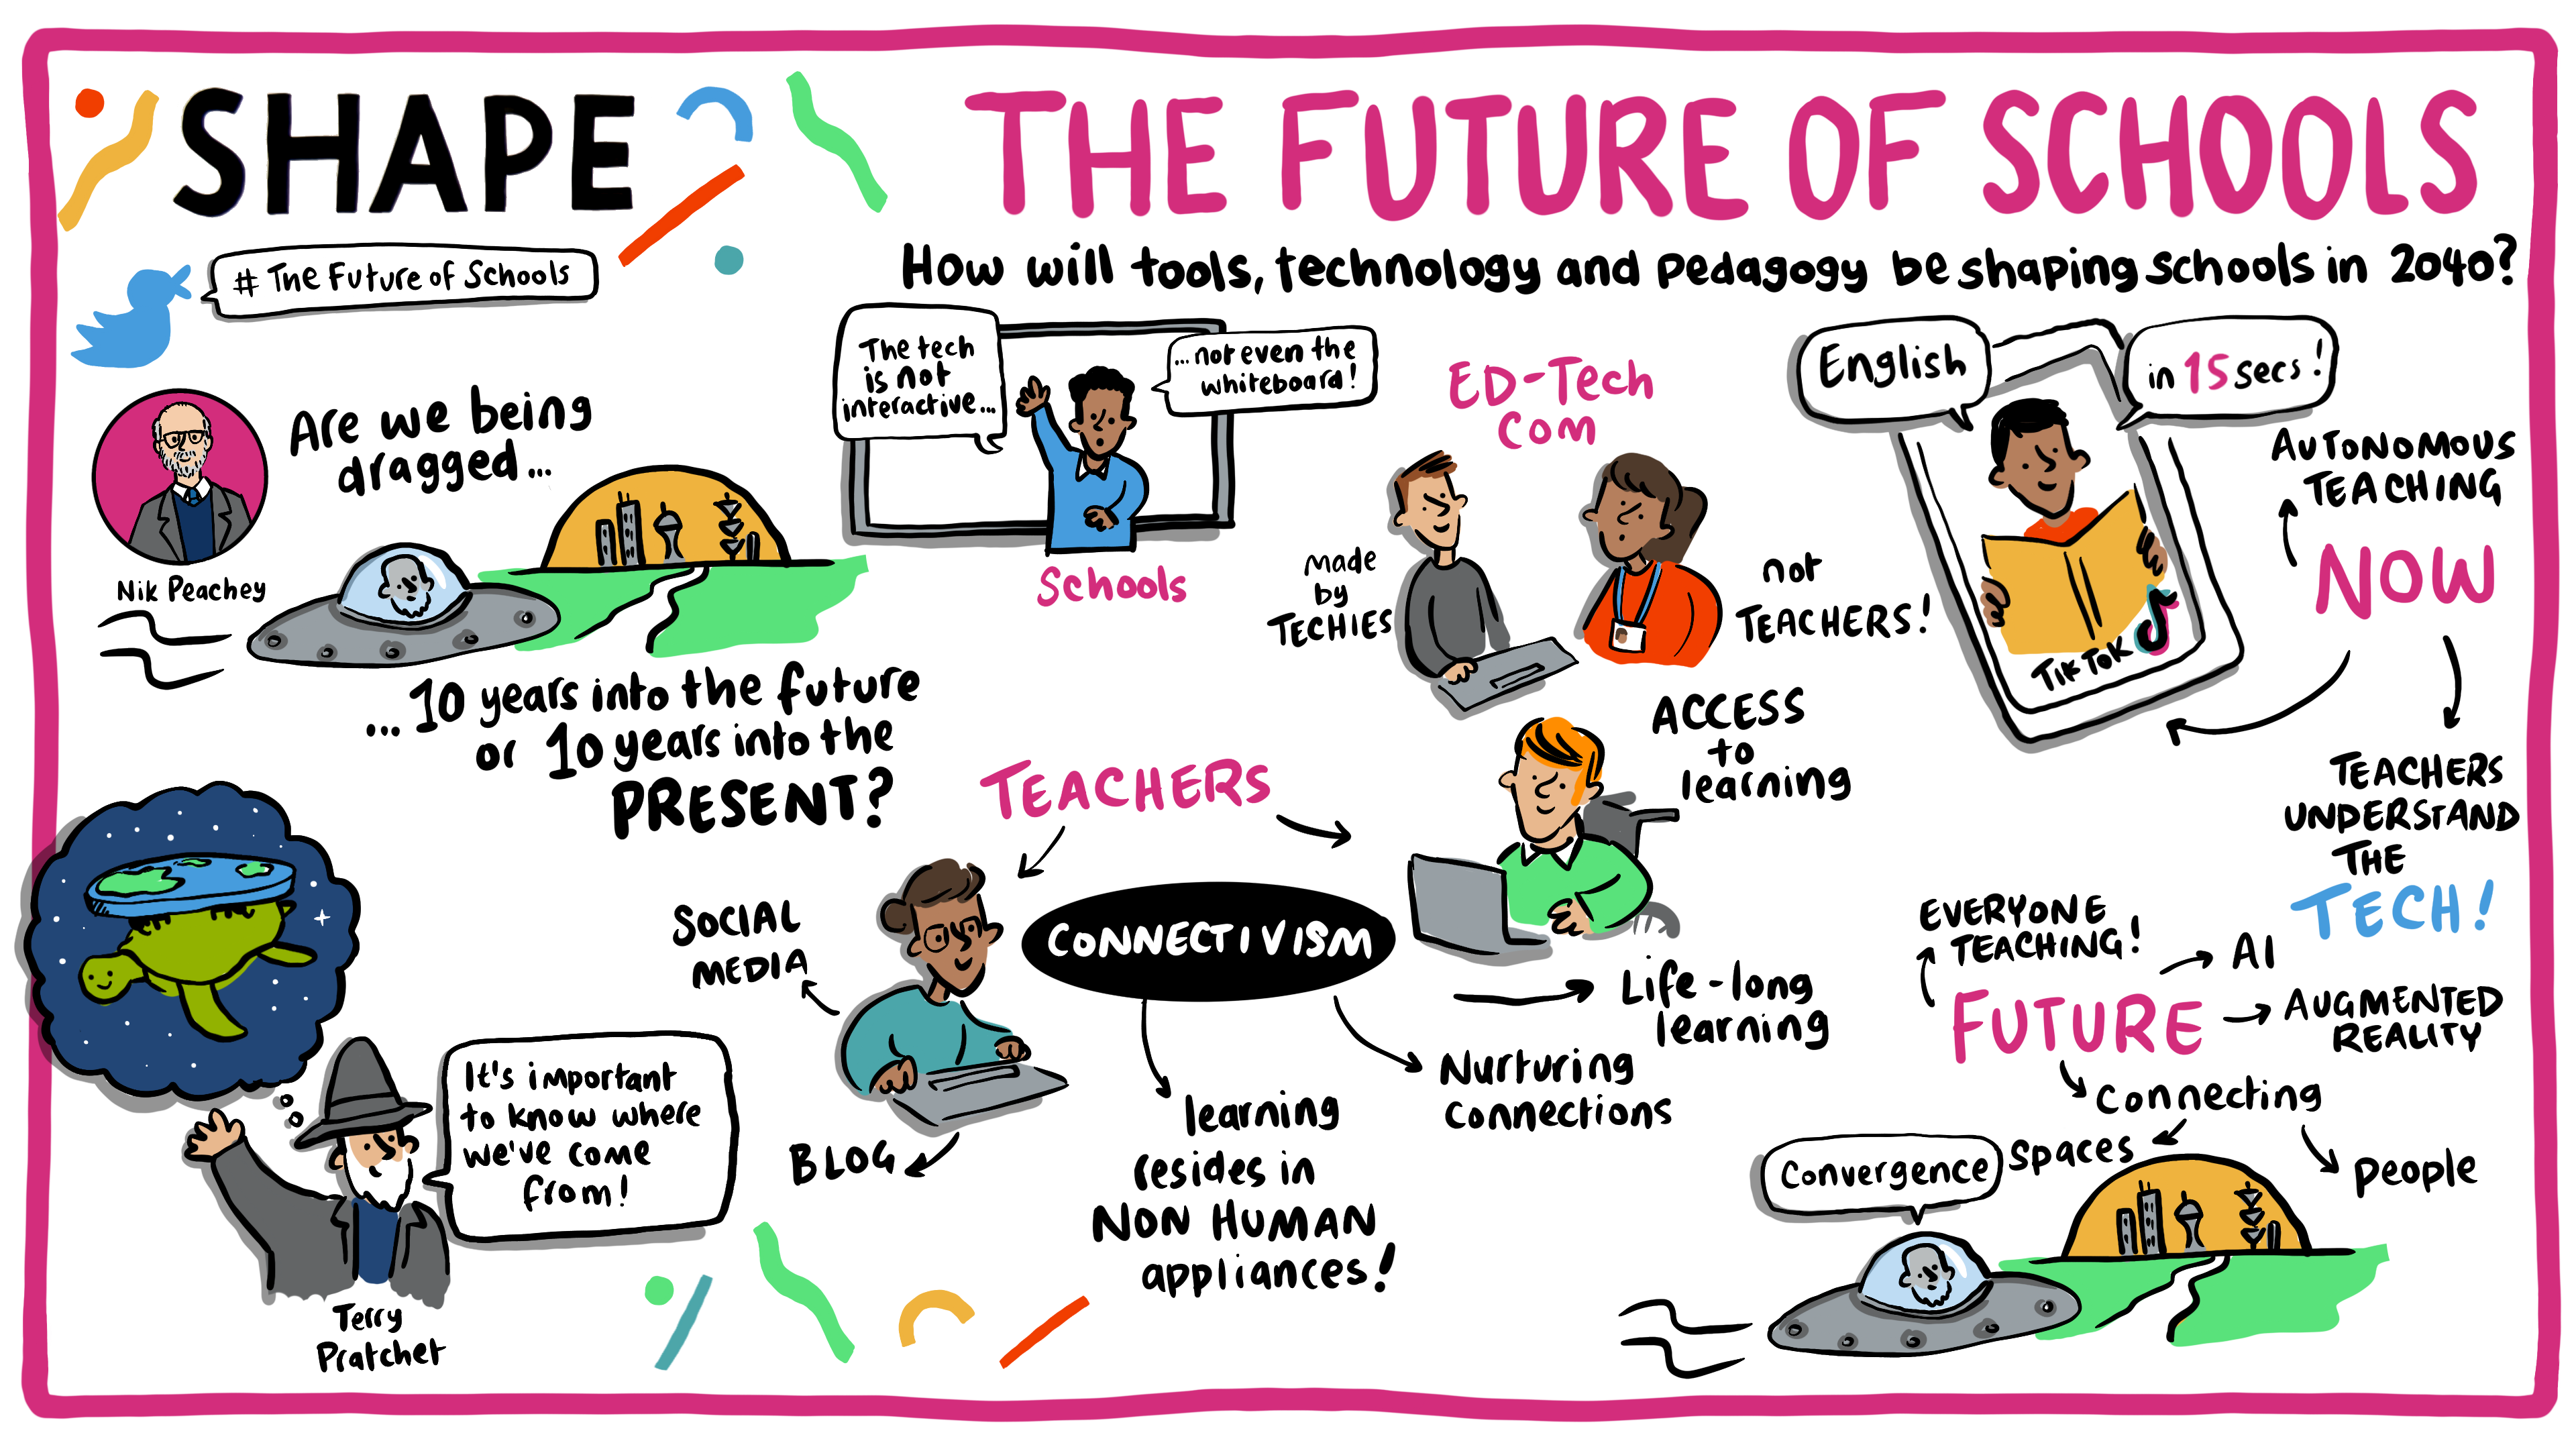 SHAPE
THE FUTURE OF SCHOOLS
# The Future of Schools
How will tools, technology and pedagogy be shaping schools in 2040?
Nik Peachey
Are we being
dragged...
...10 years into the future
or 10 years into the
PRESENT?
The tech
is not
interactive...
...not even the
whiteboard!
Schools
ED-Tech
com
made
by
TECHIES
not
TEACHERS!
English
in 15 secs!
TIKTOK
AUTONOMOUS
TEACHING
NOW
TEACHERS
UNDERSTAND
THE
TECH!
It's important
to know where
we've come
from!
Terry
Pratchet
TEACHERS
SOCIAL
MEDIA
BLOG
ACCESS
to
learning
CONNECTIVISM
learning
resides in
NON HUMAN
appliances!
Nurturing
connections
Life-long
learning
EVERYONE
TEACHING!
FUTURE
AI
AUGMENTED
REALITY
connecting
spaces
people
Convergence